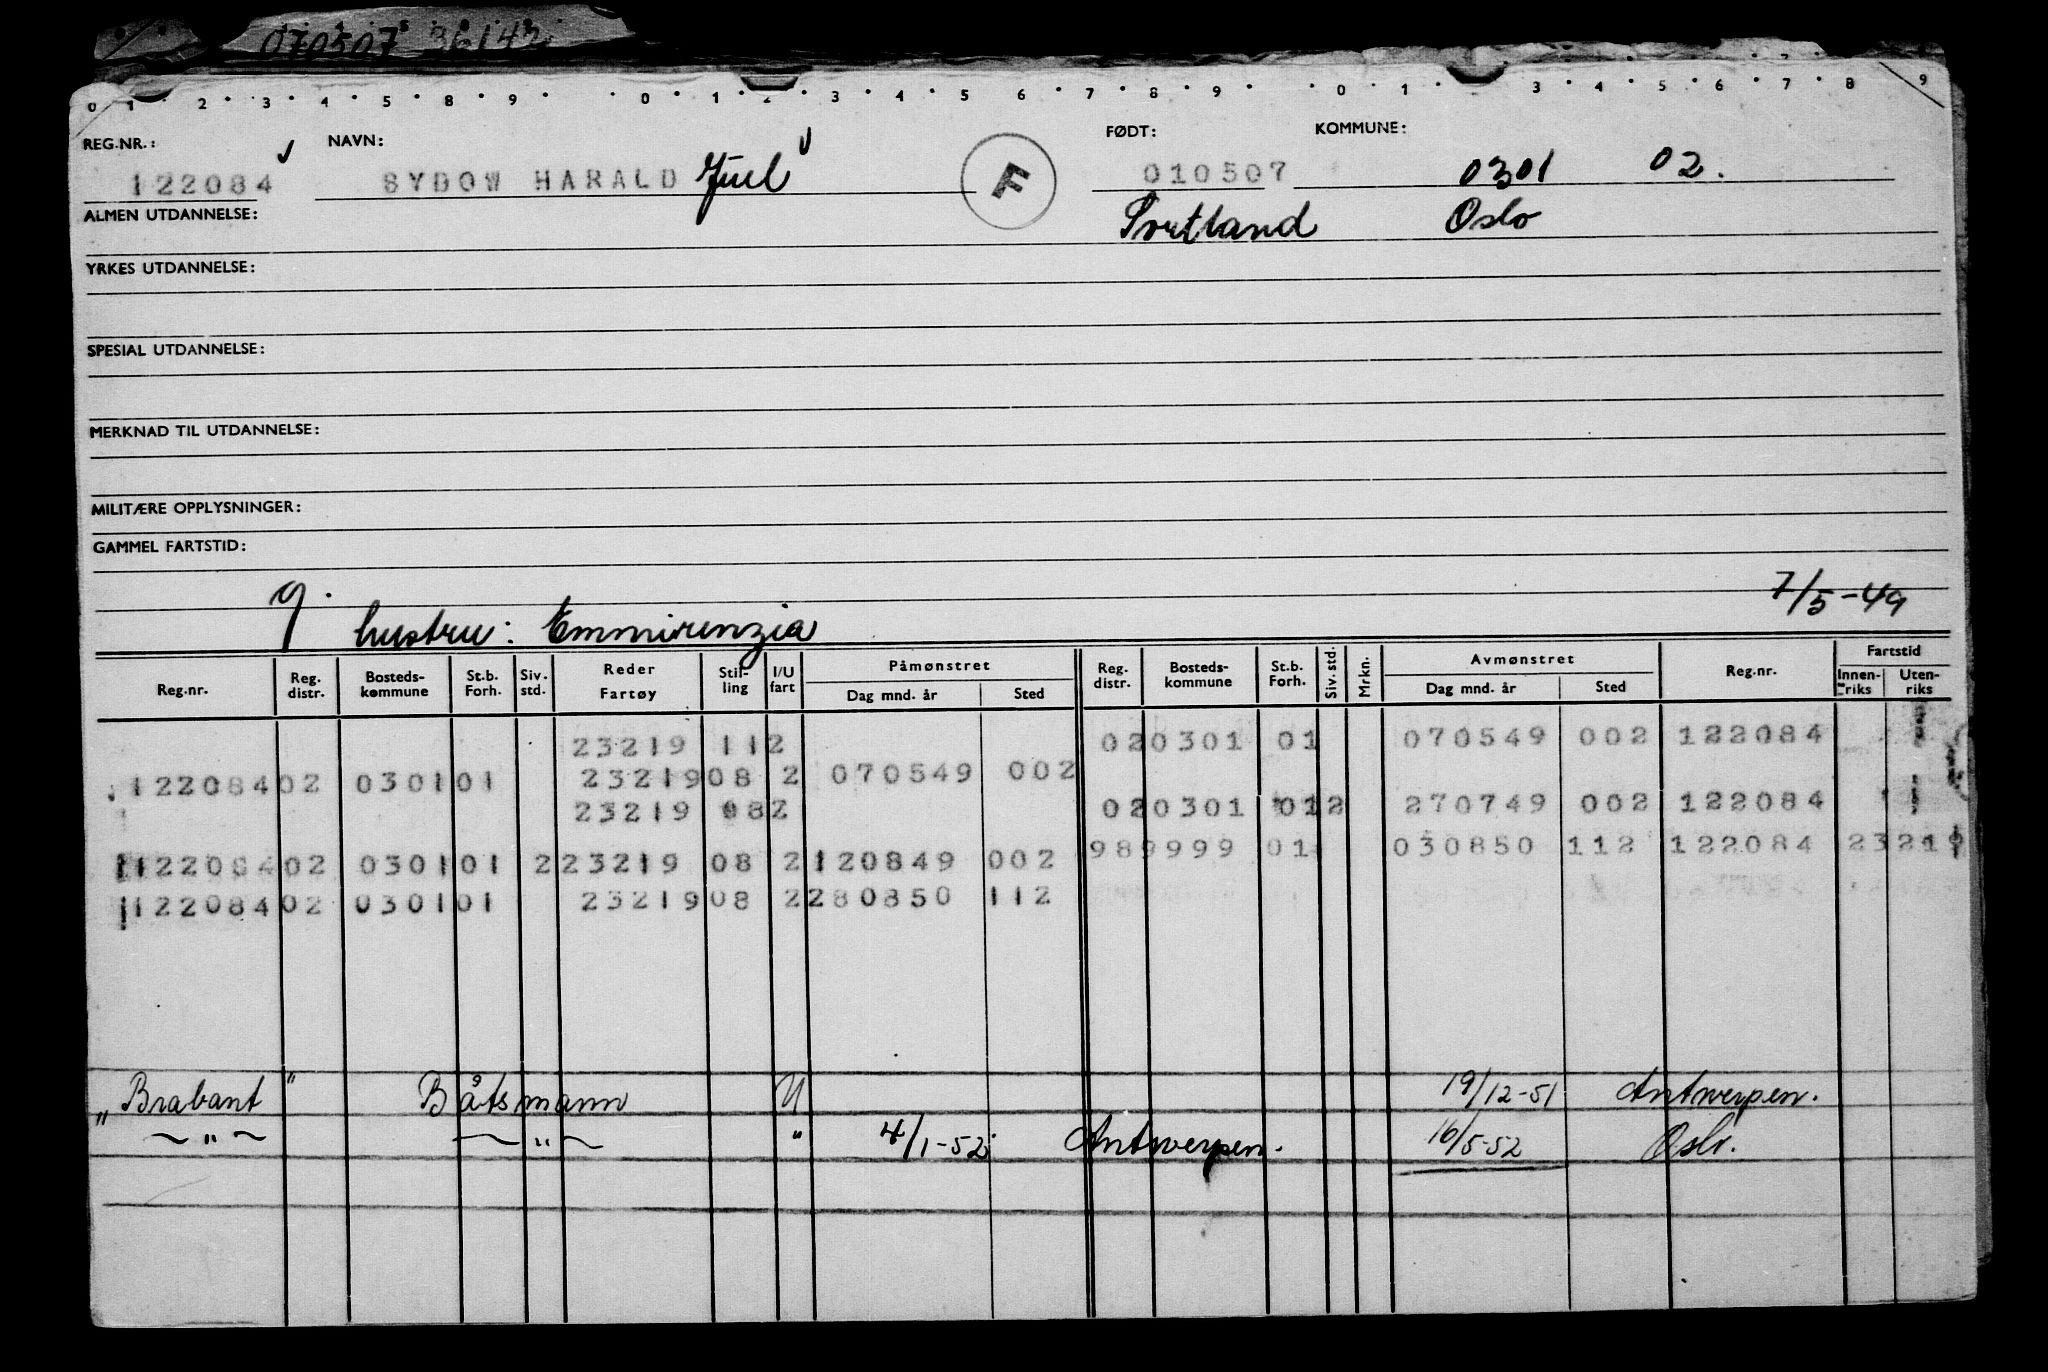 070507 36142
0 1 2 3 4 5 8 9 0 1 2 3 4 5 6 7 8 9 0 1 3 4 5 6 7 8 9
REG.NR.: NAVN: FØDT: KOMMUNE:
122084 SYDOW HARALD Juel F 010507 0301 02.
ALMEN UTDANNELSE: Oslo
YRKES UTDANNELSE:
SPESIAL UTDANNELSE:
MERKNAD TIL UTDANNELSE:
MILITÆRE OPPLYSNINGER:
GAMMEL FARTSTID:
g. hustru: Emmirenzia 7/5-49
Reg.nr. Reg. distr. Bosteds-kommune St.b. Forh. Siv. std. Reder Fartøy Stil-ling I/U fart Påmønstret Dag mnd. år Sted Reg. distr. Bosteds-kommune St.b. Forh. Siv. std. Mrkn. Avmønstret Dag mnd. år Sted Reg.nr. Fartstid Innen-riks Uten-riks
23219 112 020301 01 070549 002 122084
122084 02 0301 01 23219 08 2 070549 002
23219 082 020301 012 270749 002 122084
122084 02 0301 01 2 23219 08 2 120849 002 989999 01 030850 112 122084 23219
122084 02 0301 01 23219 08 2 280850 112
"Brabant" Båtsmann U 19/12-51 Antwerpen.
~"~ ~"~ " 4/1-52 Antwerpen. 16/5-52 Oslo.